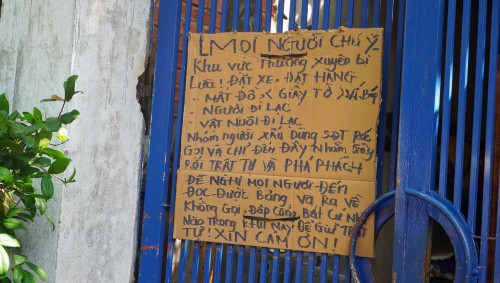 ! MỌI NGƯỜI CHÚ Ý
Khu vực Thường xuyên bị
LừA! ĐẶT XE, ĐẶT HÀNG
- MẤT ĐỒ < GIẤY TỜ > Ví Bóp
- NGƯỜI ĐI LẠC
- VẬT NUÔI ĐI LẠC
Nhóm người xấu Dùng SĐT Rác
GỌI VÀ CHỈ ĐẾN ĐÂY Nhằm Gây
RỐI TRẬT TỰ VÀ PHÁ PHÁCH
ĐỀ NGHỊ MỌI NGƯỜI ĐẾN
ĐỌC ĐƯỢC Bảng VÀ RA VỀ
Không Gọi, Đập Cổng Bất Cứ Nhà
Nào Trong KHU NÀY ĐỂ GIỮ TRẬT
TỰ! XIN CẢM ƠN!